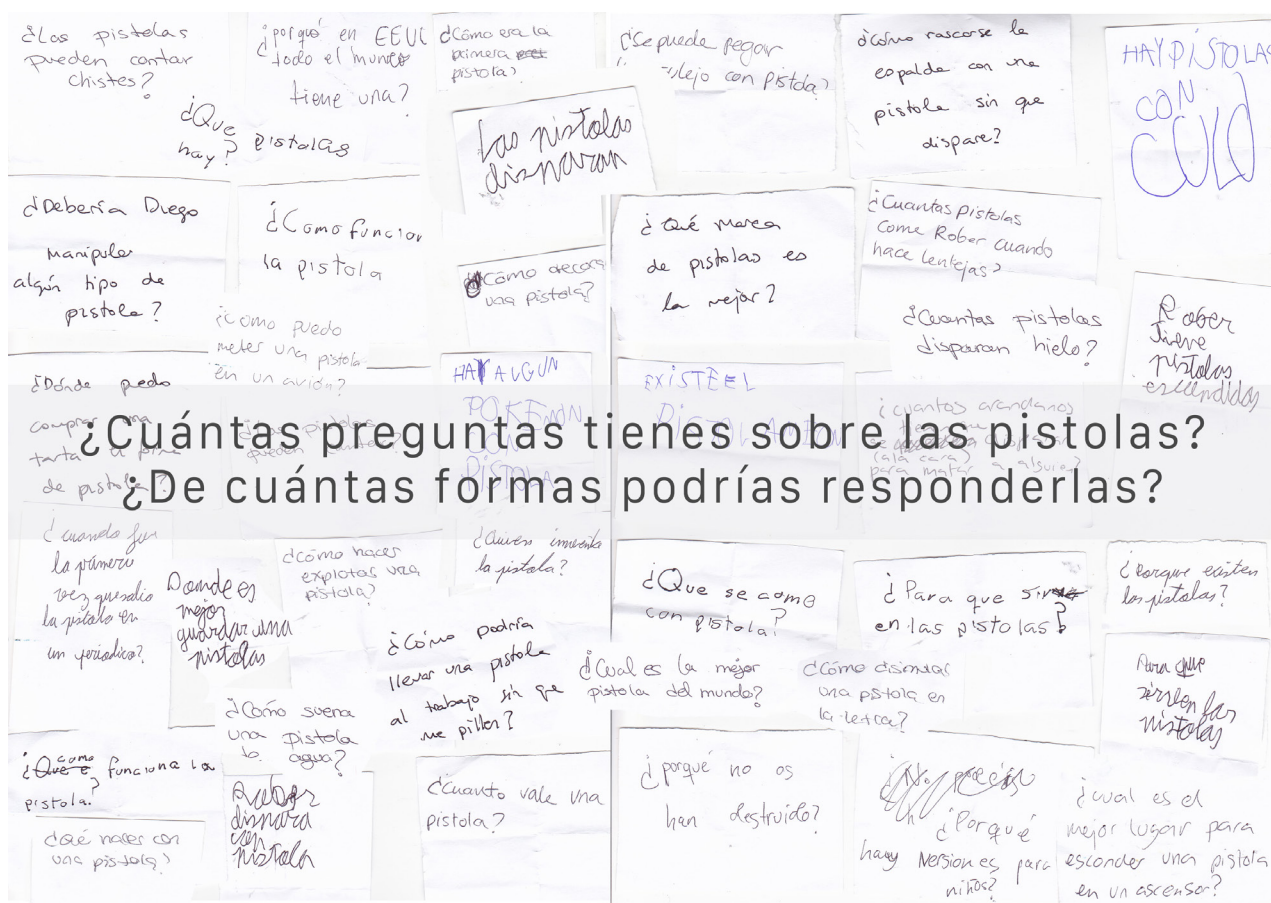 ¿Las pistolas
pueden contar
chistes?
¿porqué en EEUU
todo el mundo
tiene una?
¿Cómo era la
primera
pistola?
¿Se puede pegar
con pistola?
¿Cómo rascarse la
espalda con una
pistola sin que
dispare?
HAY PISTOLAS
CON
CULO
¿Que pistolas
hay?
Las pistolas
disparan
¿Debería Diego
manipular
algún tipo de
pistola?
¿Como funcion
la pistola
¿Cómo decora
una pistola?
¿Qué marca
de pistolas es
la mejor?
¿Cuantas pistolas
come Rober cuando
hace lentejas?
¿Cuantas pistolas
disparan hielo?
Rober
tiene
pistolas
escondidas
¿Como puedo
meter una pistola
en un avión?
¿Dónde puedo
comprar una
tarta
de pistola?
HAY ALGUN
POKEMON
CON
PISTOLA
EXISTE EL
¿cuantos arandanos
(a la cara)
para matar a alguien?
¿Cuántas preguntas tienes sobre las pistolas?
¿De cuántas formas podrías responderlas?
¿cuando fue
la primera
vez que salio
la pistola en
un periodico?
Donde es
mejor
guardar una
pistolas
¿Cómo hacer
explotar una
pistola?
¿Quien inventa
la pistola?
¿Cómo podría
llevar una pistola
al trabajo sin que
me pillen?
¿Que se come
con pistola?
¿Para que sirv
en las pistolas?
¿Porque existen
las pistolas?
¿Cual es la mejor
pistola del mundo?
¿Cómo disimular
una pstola en
la letra?
Para que
sirven las
pistolas
¿Cómo suena
una pistola
de agua?
¿como funciona la
pistola?
Rober
dispara
con
pistola
¿Cuanto vale una
pistola?
¿porqué no os
han destruido?
¿Porqué
hay versiones para
niños?
¿cual es el
mejor lugar para
esconder una pistola
en un ascensor?
¿Qué hacer con
una pistola?